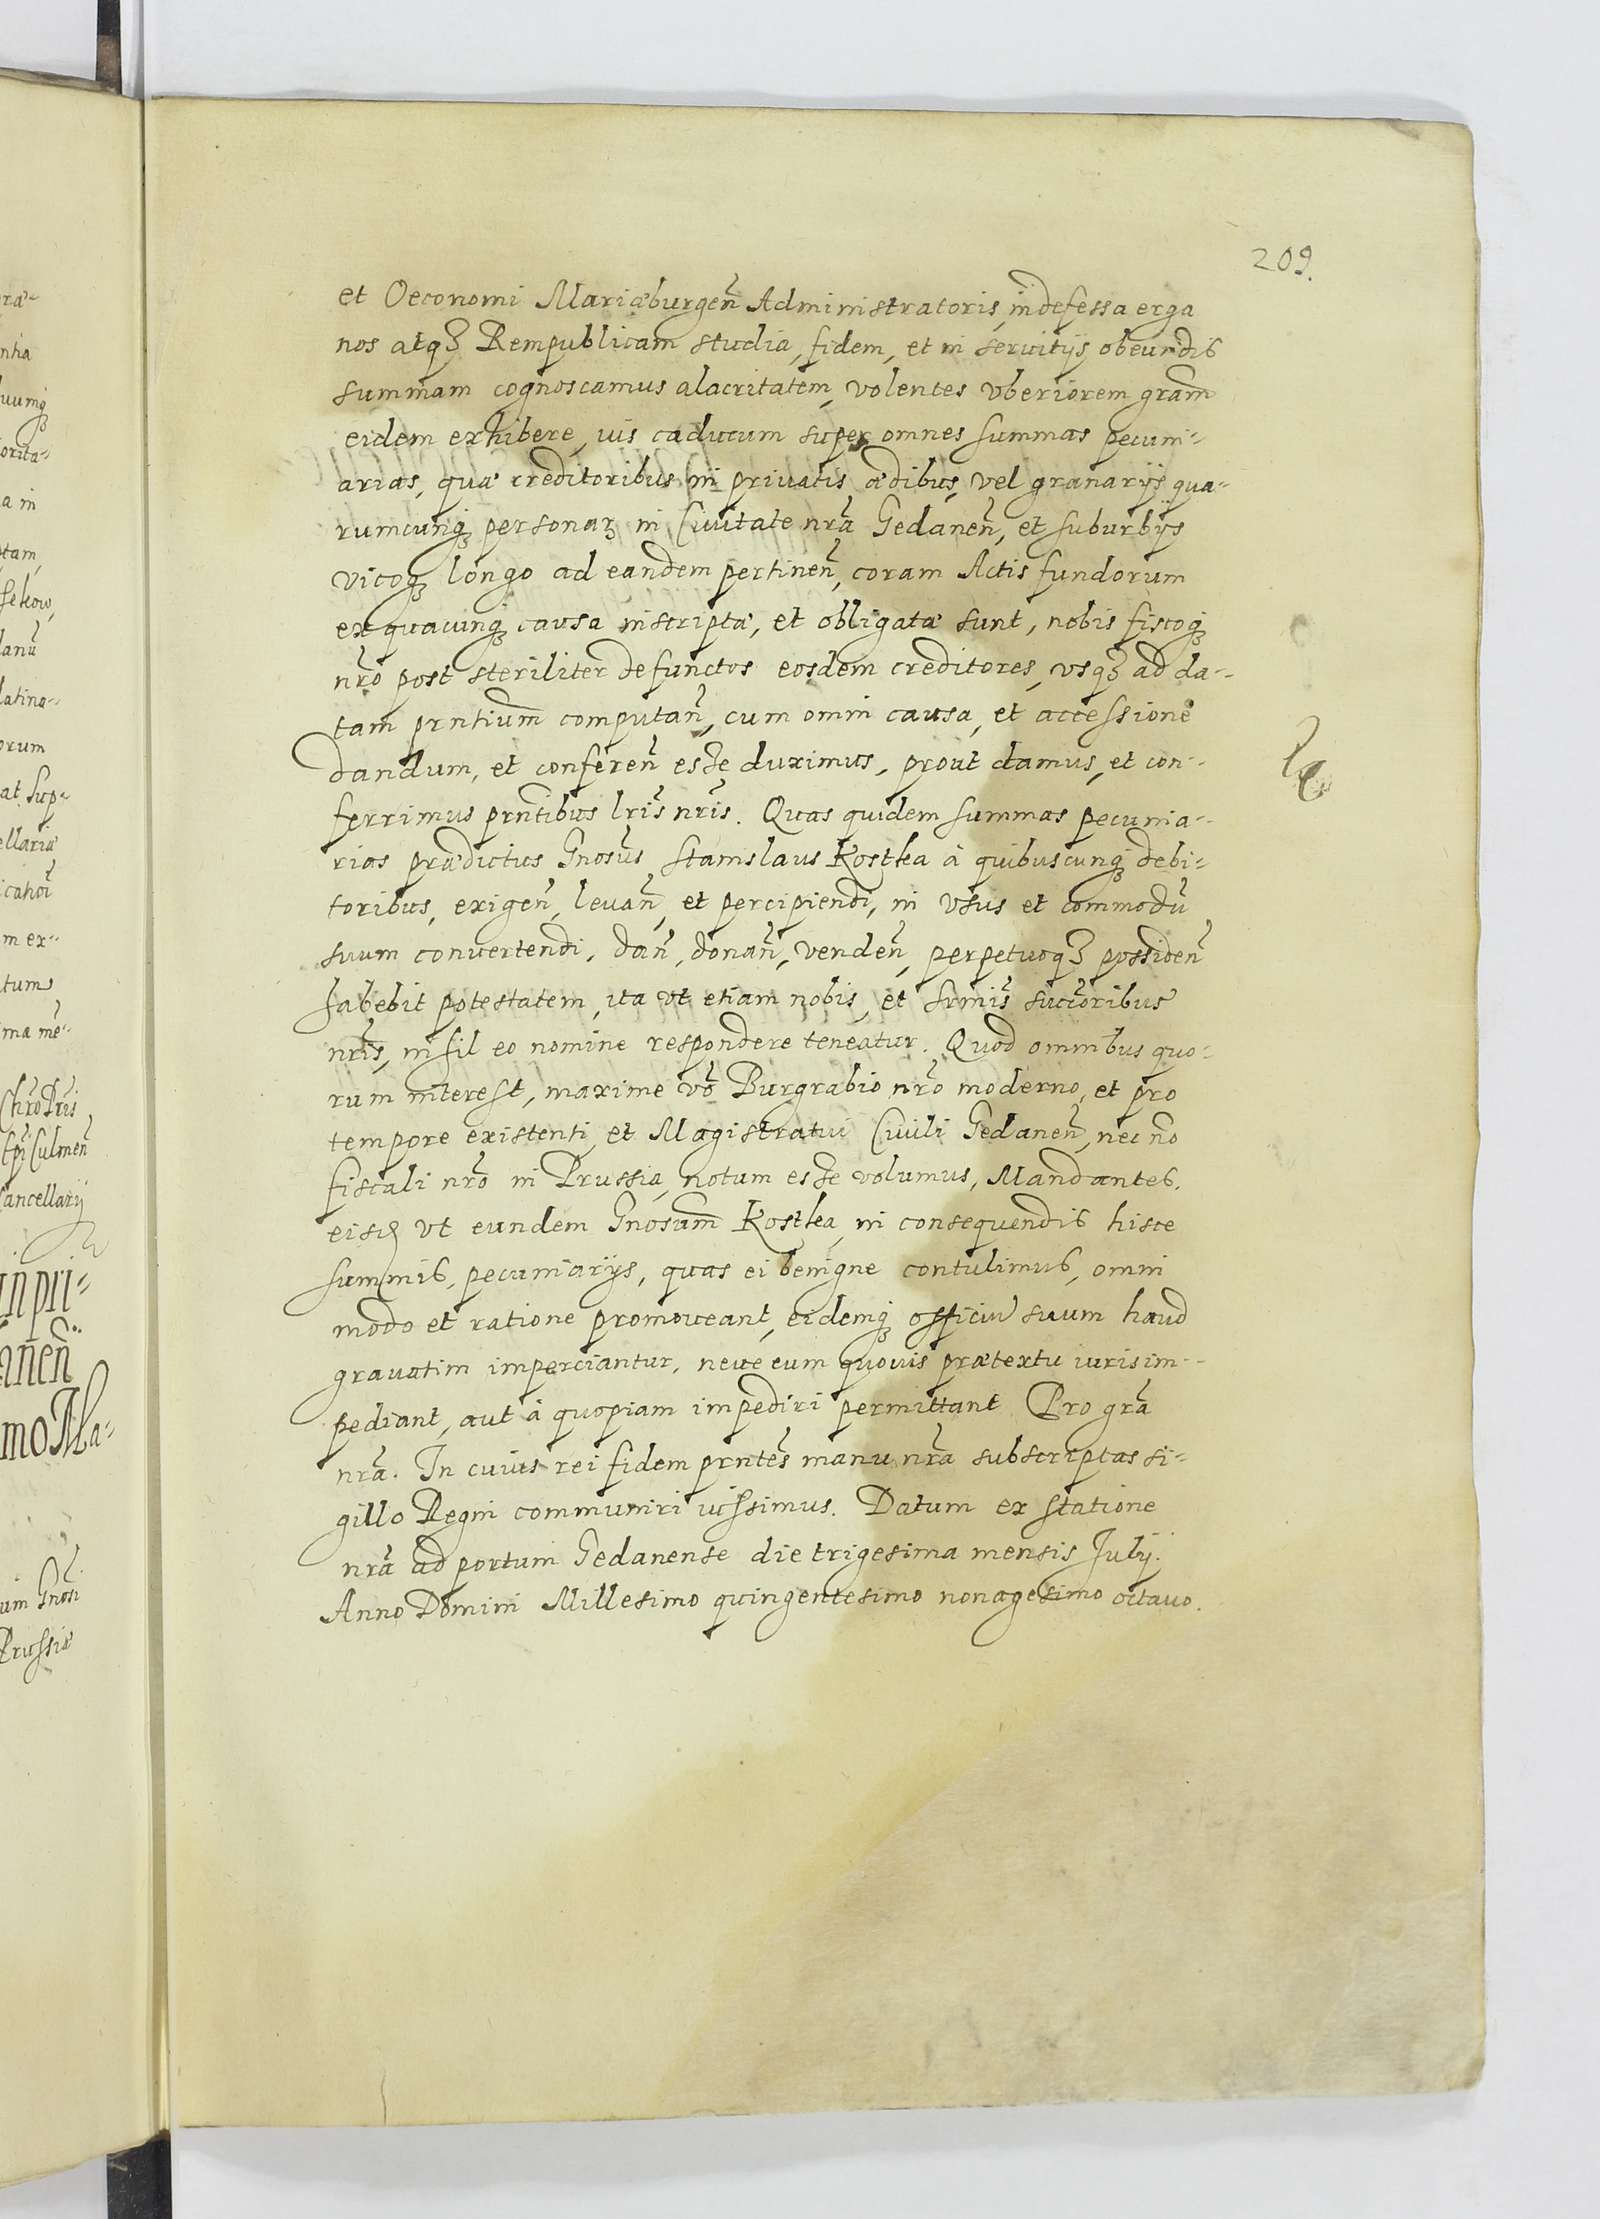 209.
et Oeconomi Mariæburgeñ Administratoris, indefessa erga
nos atqꝫ Rempublicam studia, fidem, et in seruitijs obeundis
summam cognoscamus alacritatem, volentes vberiorem gram̃
eidem exhibere, ius caducum super omnes summas pecuni-
arias, quæ creditoribus in priuatis ædibus, vel granarijs qua-
rumcunqꝫ personaꝝ in Ciuitate nrã Gedaneñ, et suburbijs
vicoqꝫ longo ad eandem pertineñ, coram Actis fundorum
ex quacunqꝫ causa inscriptæ, et obligatæ sunt, nobis fiscoqꝫ
nrõ post steriliter defunctos eosdem creditores, vsqꝫ ad da-
tam prñtium computañ, cum omni causa, et accessione
dandum, et confereñ esse duximus, prout damus, et con-
ferrimus prñtibus lrĩs nrĩs. Quas quidem summas pecunia-
rias prædictus Gnosũs Stanislaus Kostka à quibuscunqꝫ debi-
toribus, exigeñ, leuañ, et percipiendi, in vsus et commodũ
suum conuertendi, dañ, donañ, vendeñ, perpetuoqꝫ possideñ
habebit potestatem, ita vt etiam nobis, et Srmĩs succoribus̃
nrĩs, nihil eo nomine respondere teneatur. Quod omnibus quo-
rum interest, maxime võ Burgrabio nrõ moderno, et pro
tempore existenti, et Magistratui Ciuili Gedaneñ, nec nõ
fiscali nrõ in Prussia, notum esse volumus, Mandantes,
eisd vt eundem Gnosum̃ Kostka, in consequendis hisce
summis, pecuniarijs, quas ei benigne contulimus, omni
modo et ratione promoueant, eidemqꝫ officiũ suum haud
grauatim imperciantur, neue eum quouis prætextu iuris im-
pediant, aut à quopiam impediri permittant Pro grã
nrã. In cuius rei fidem prñtes manu nrã subscriptas si-
gillo Regni communiri iussimus. Datum ex statione
nrã ad portum Gedanense die trigesima mensis Julij.
Anno Domini Millesimo quingentesimo nonagesimo octauo.